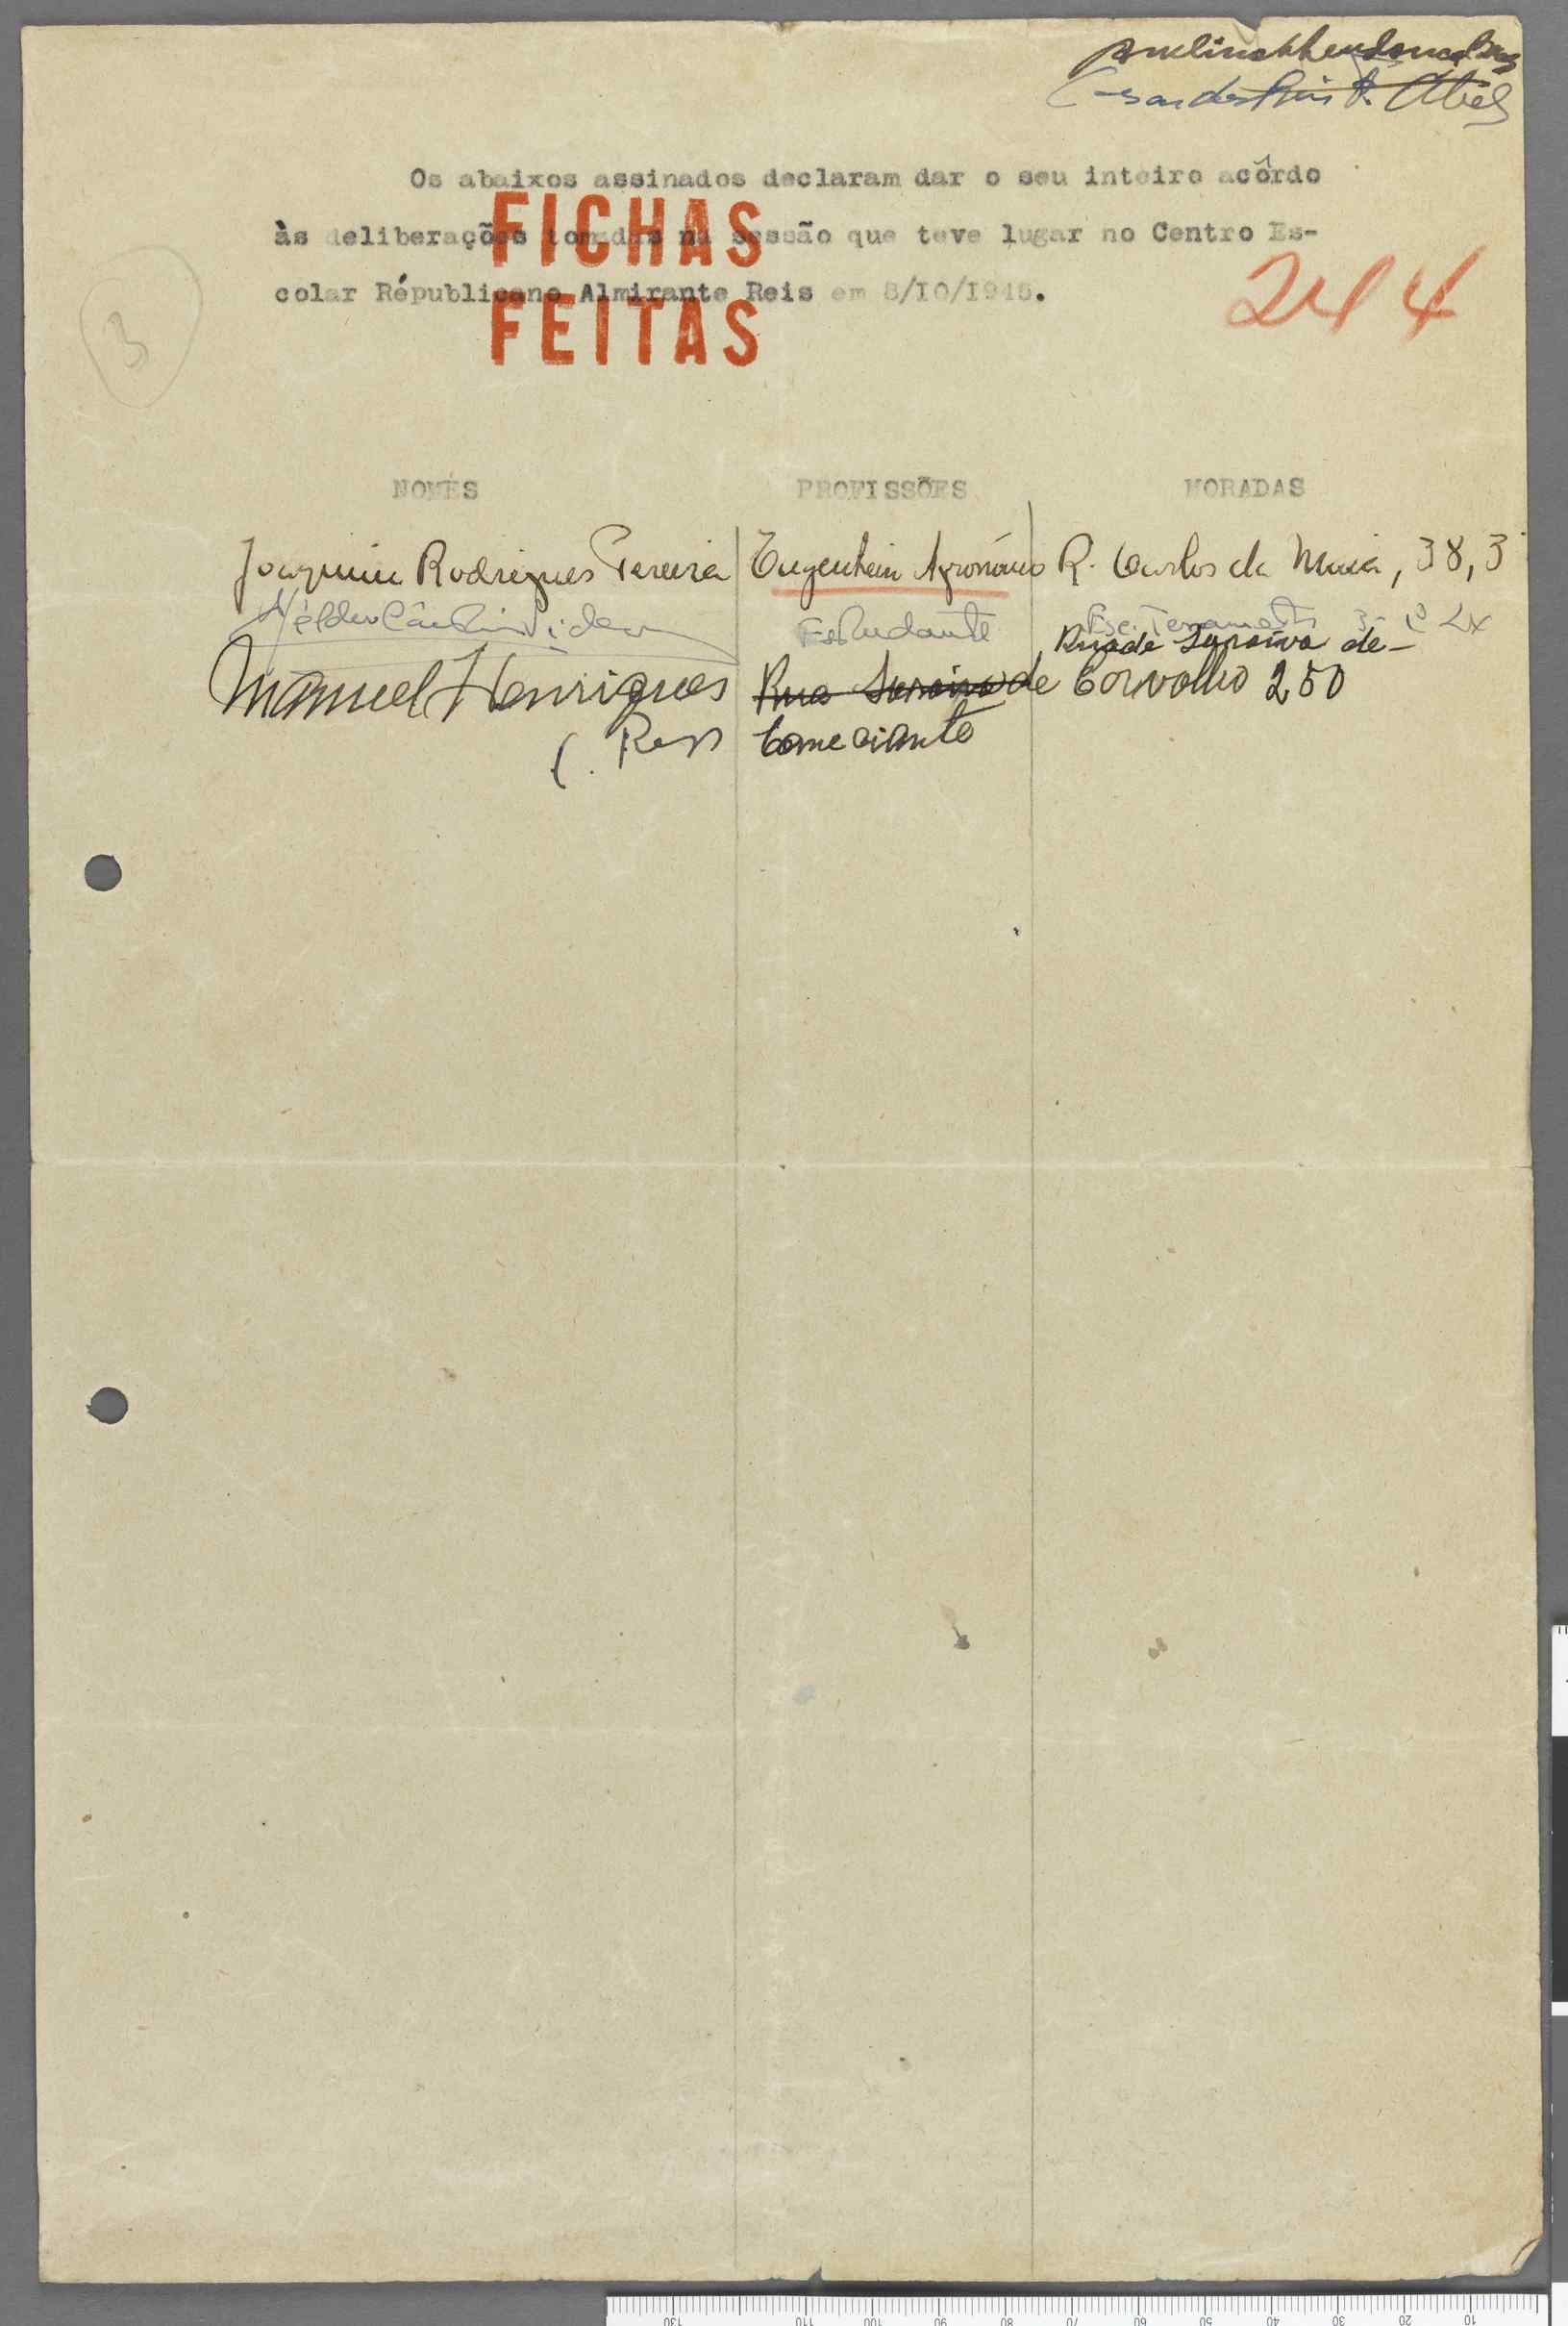 Os abaixos assinados declaram dar o seu inteiro acôrdo
FICHAS
às deliberações tomadas na sessão que teve lugar no Centro Es-
colar Républicano Almirante Reis em 8/IO/I945.
FEITAS
244
3
NOMES PROFISSÕES MORADAS
Joaquim Rodrigues Pereira Engenheiro Agronómo R. Carlos da Maia, 38, 3º
Hélder Estudante
Rua de Saraiva de-
Manuel Henriques Rua Saraiva de Carvalho 250
Comeciante